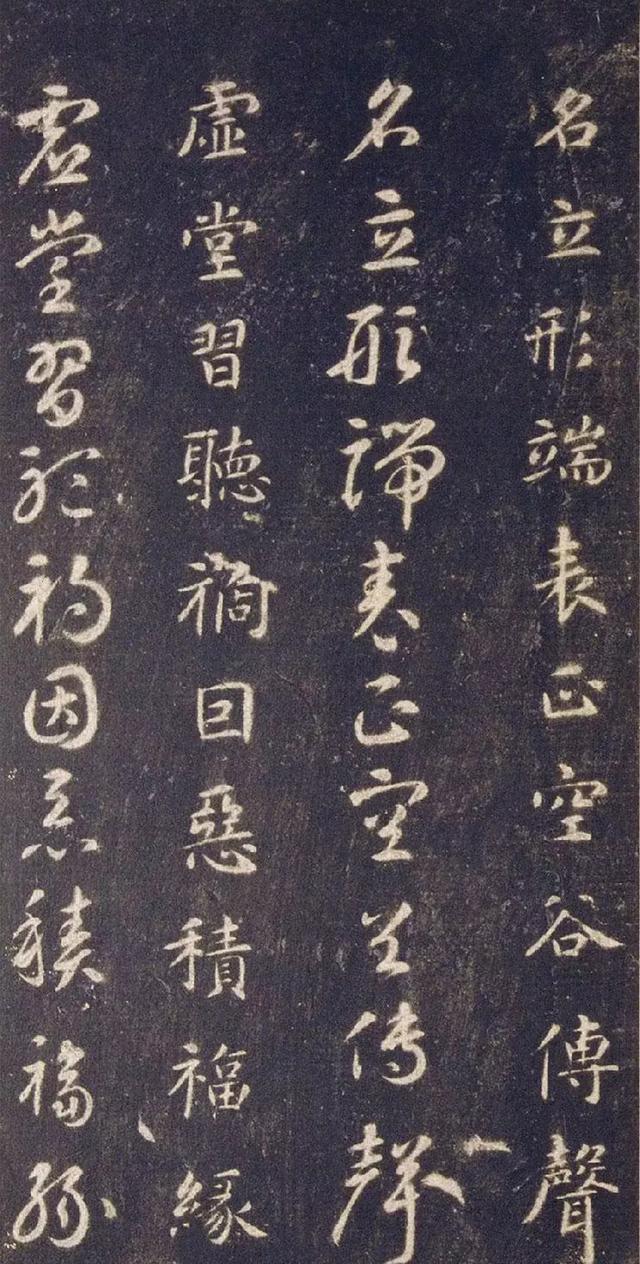 名立形端表正空谷傳聲
名立形端表正空谷传聲
虚堂習聽禍因惡積福緣
虚堂習聽禍因惡積福緣